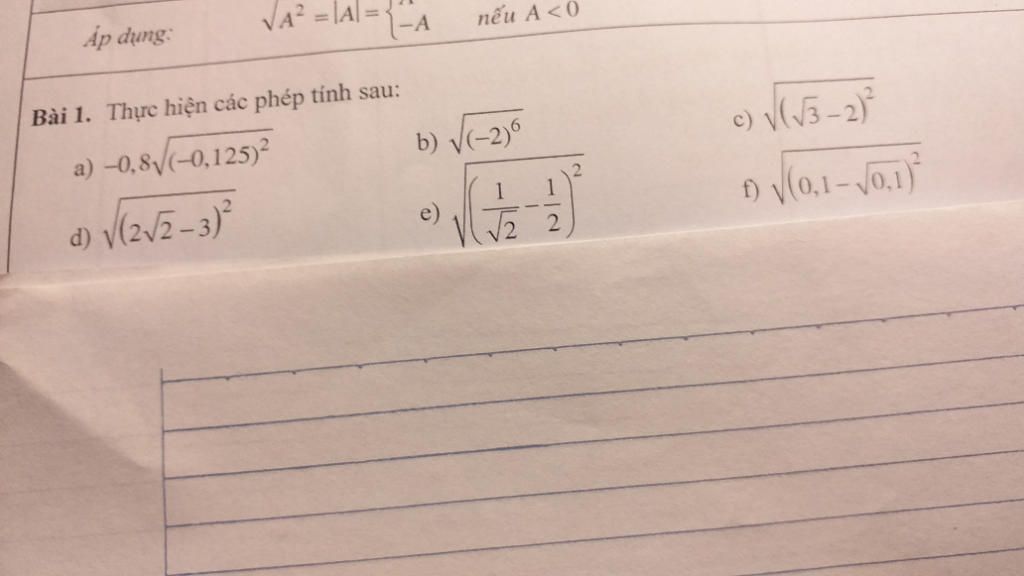 Áp dụng: √A² = |A| = { −A nếu A < 0
Bài 1. Thực hiện các phép tính sau:
a) −0,8√(−0,125)² b) √(−2)⁶ c) √(√3 − 2)²
d) √(2√2 − 3)² e) √(1/√2 − 1/2)² f) √(0,1 − √0,1)²